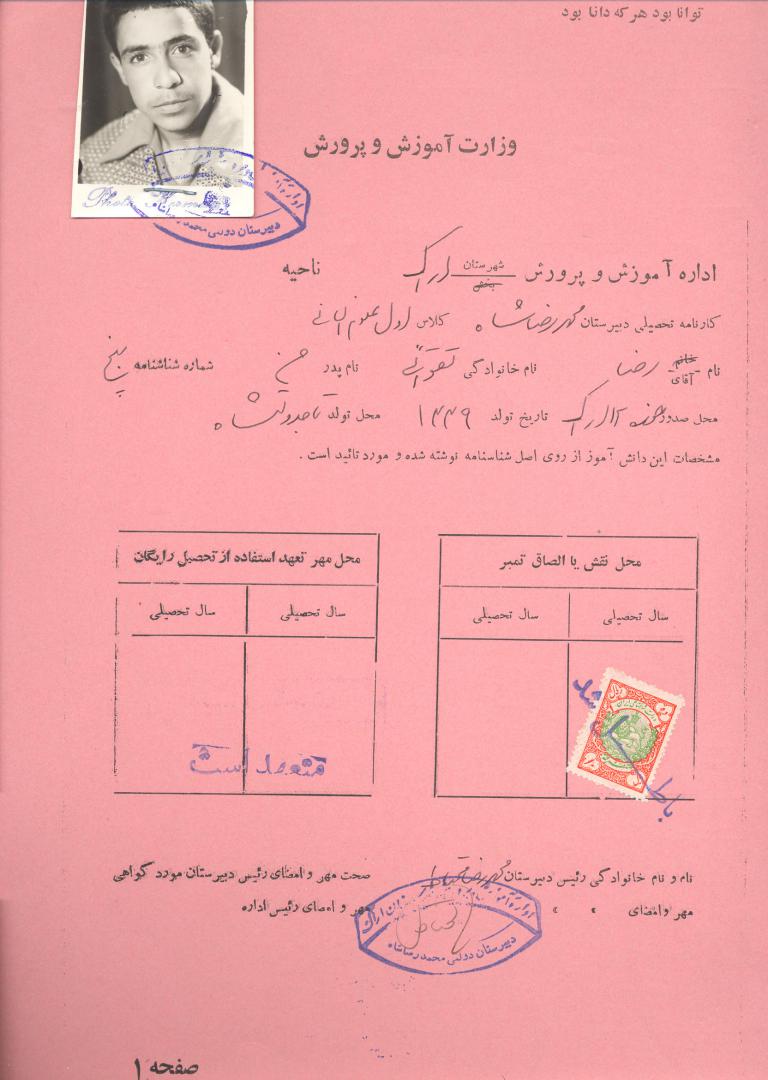 توانا بود هر که دانا بود
وزارت آموزش و پرورش
دبیرستان دولتی محمدرضاشاه
اداره آموزش و پرورش شهرستان بخش اراک ناحیه
کارنامه تحصیلی دبیرستان محمدرضاشاه کلاس اول علوم انسانی
نام خانم آقای رضا نام خانوادگی نام پدر شماره شناسنامه پنج
محل صدور اراک تاریخ تولد ۱۳۳۹ محل تولد
مشخصات این دانش آموز از روی اصل شناسنامه نوشته شده و مورد تائید است .
محل نقش یا الصاق تمبر
سال تحصیلی سال تحصیلی
محل مهر تعهد استفاده از تحصیل رایگان
سال تحصیلی سال تحصیلی
باطل شد
متعهد است
نام و نام خانوادگی رئیس دبیرستان صحت مهر و امضای رئیس دبیرستان مورد گواهی
مهر و امضای » » مهر و امضای رئیس اداره
دبیرستان دولتی محمدرضاشاه
صفحه ۱